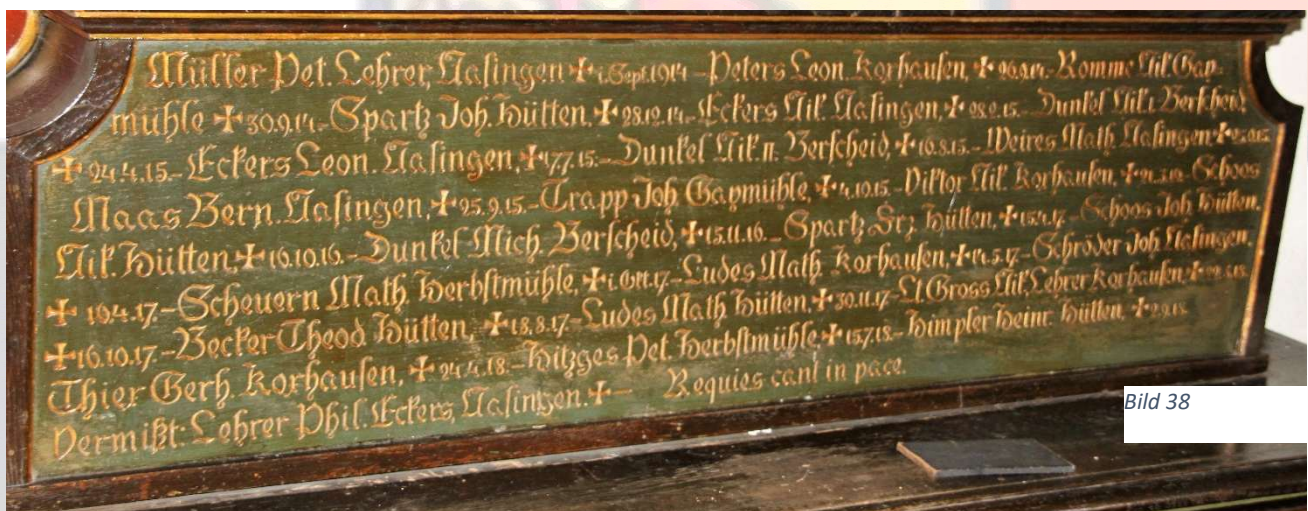 Müller Pet. Lehrer, Nasingen + 1. Sept. 1914 – Peters Leon. Korhausen, + 26.9.14 – Romme Nik. Gay-
mühle + 30.9.14. – Spartz Joh. Hütten. + 28.12.14 – Eckers Nik. Nasingen, + 28.2.15. – Dunkel Nik. I. Berscheid,
+ 24.4.15. – Eckers Leon. Nasingen, + 17.7.15. – Dunkel Nik. II. Berscheid, + 16.8.15. – Weires Math. Nasingen +
Maas Bern. Nasingen, + 25.9.15. – Trapp Joh. Gaymühle, + 4.10.15. – Viktor Nik. Korhausen, + – Schoos
Nik. Hütten + 16.10.16. – Dunkel Mich. Berscheid, + 15.11.16. – Spartz Frz. Hütten, + 15.4.17. – Schoos Joh. Hütten.
+ 19.4.17. – Scheuern Math. Herbstmühle, + 1. Okt. 17. – Ludes Math. Korhausen, + 14.5.17. – Schröder Joh. Nasingen.
+ 16.10.17. – Becker Theod. Hütten, + 18.8.17. – Ludes Math. Hütten. + 30.11.17. – Lt. Gross Nik. Lehrer Korhausen +
Thier Gerh. Korhausen, + 24.4.18. – Hitzges Pet. Herbstmühle + 15.7.18. – Himpler Heinr. Hütten. +
Vermißt: Lehrer Phil. Eckers, Nasingen. + – Requiescant in pace.
Bild 38